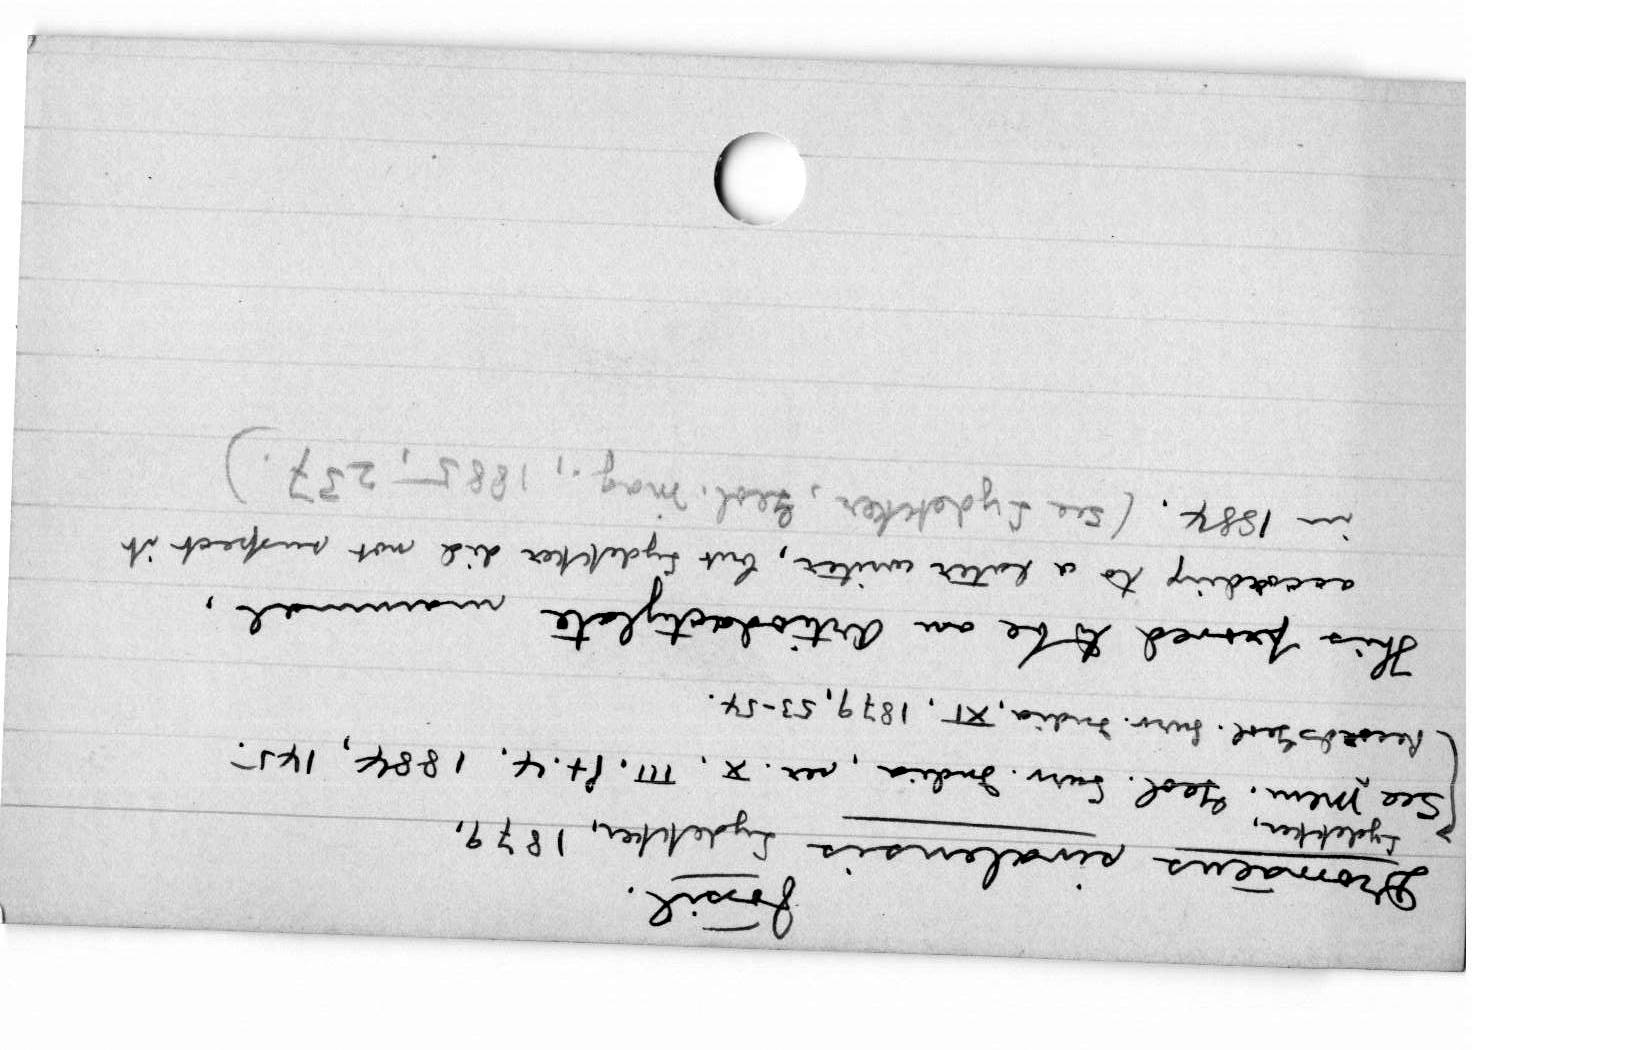 Fossil.
Dromaeus sivalensis Lydekker, 1879,
Lydekker,
See Mem. Geol. Surv. India, ser. X. III. Pt. 4, 1884, 145.
(Records Geol. Surv. India, XI, 1879, 53-54.
This proved to be an Artiodactylate mammal,
according to a later writer, but Lydekker did not suspect it
in 1884. (See Lydekker, Geol. Mag., 1885, 237.)